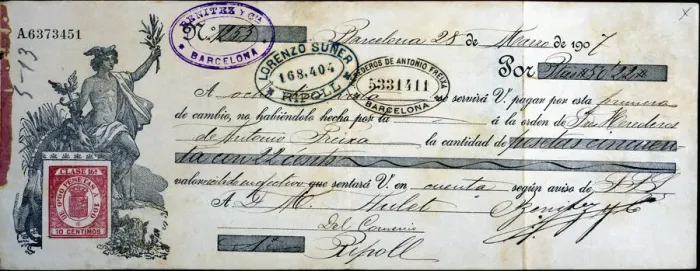 A.6373451
5-13
BENITEZ Y CIA
BARCELONA
Nº 1153
Barcelona 28 de Marzo de 1907
LORENZO SUÑER
168.404
RIPOLL
HEREDEROS DE ANTONIO FREIXA
5331411
BARCELONA
Por Ptas 50'22
A ocho días vista se servirá V. pagar por esta primera
de cambio, no habiéndolo hecho por la á la orden de Sres Herederos
de Antonio Freixa la cantidad de pesetas cincuen
ta con 22 cents
valor en efectivo que sentará V. en cuenta según aviso de S.S.
A D. M. Benitez y Cª
Del Comercio
Ripoll
CLASE 10ª
10 CENTIMOS